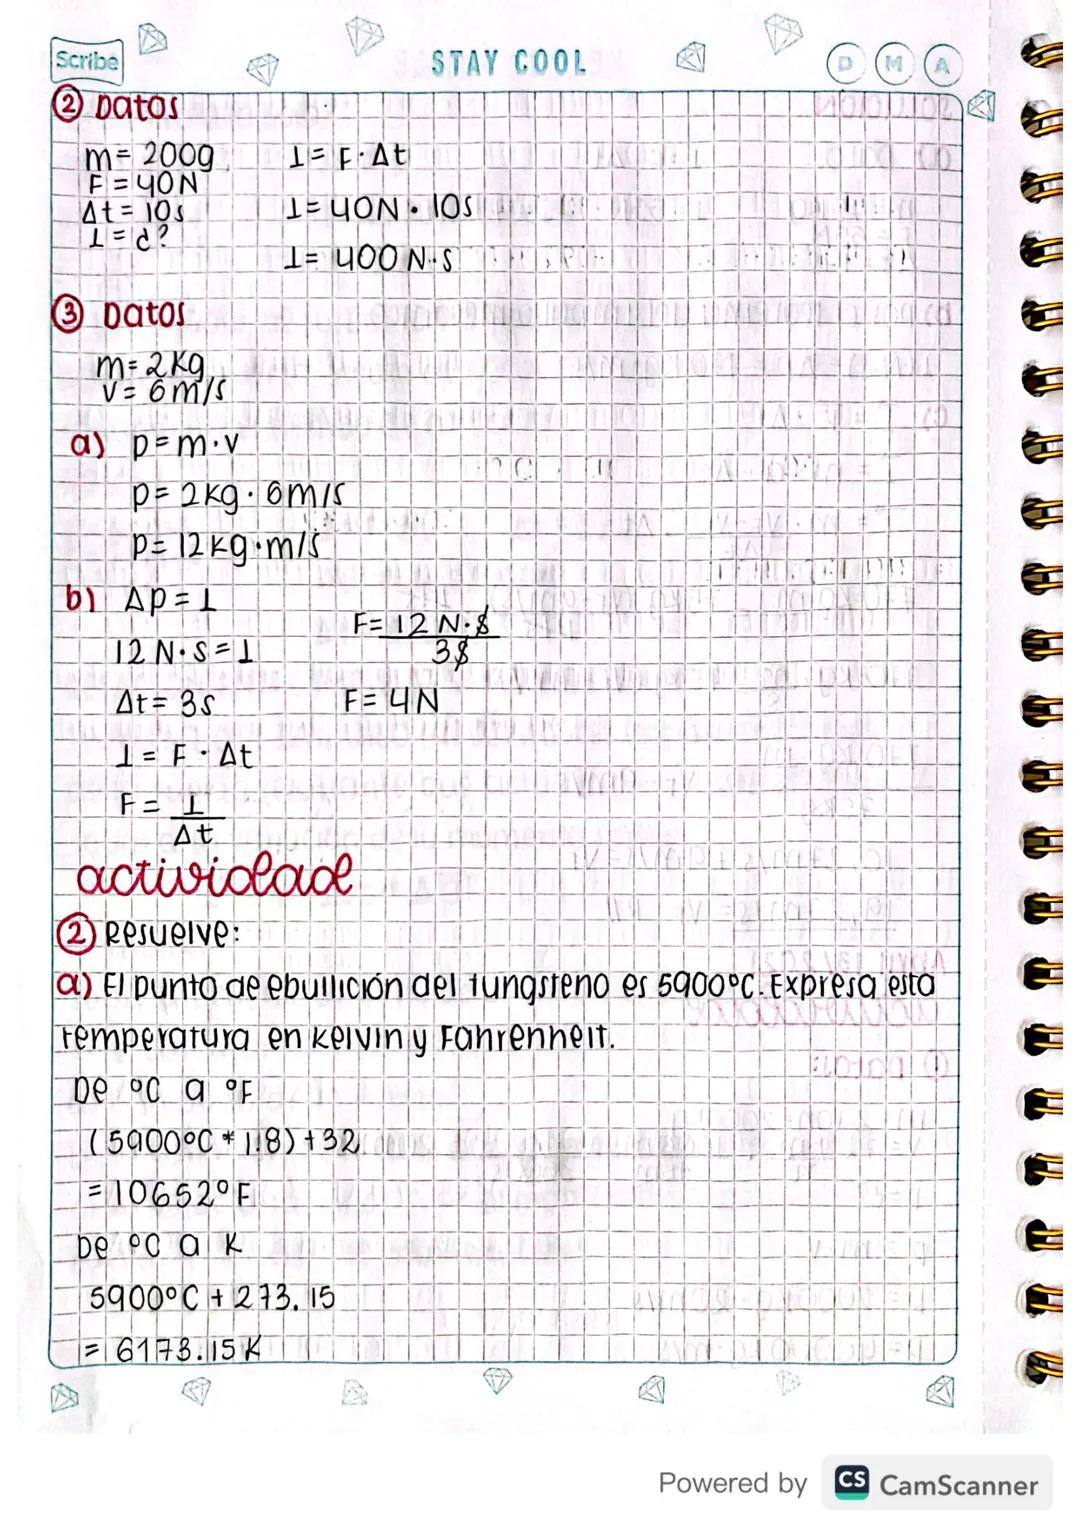 Scribe
STAY COOL
D M A
② Datos
m= 200g
F = 40N
Δt= 10s
I = ¿?
I= F·Δt
I= 40N · 10s
I= 400 N·s
③ Datos
m= 2Kg
v= 6m/s
a) p=m·v
p= 2Kg · 6m/s
p= 12Kg·m/s
b) Δp = I
12 N·s = I
Δt= 3s
I = F · Δt
F = I
Δt
F= 12 N·s
3s
F= 4N
actividad
② Resuelve:
a) El punto de ebullición del tungsteno es 5900°C. Expresa esta
temperatura en Kelvin y Fahrenheit.
De °C a °F
(5900°C * 1.8) + 32
= 10652°F
De °C a K
5900°C + 273.15
= 6173.15 K
Powered by CS CamScanner